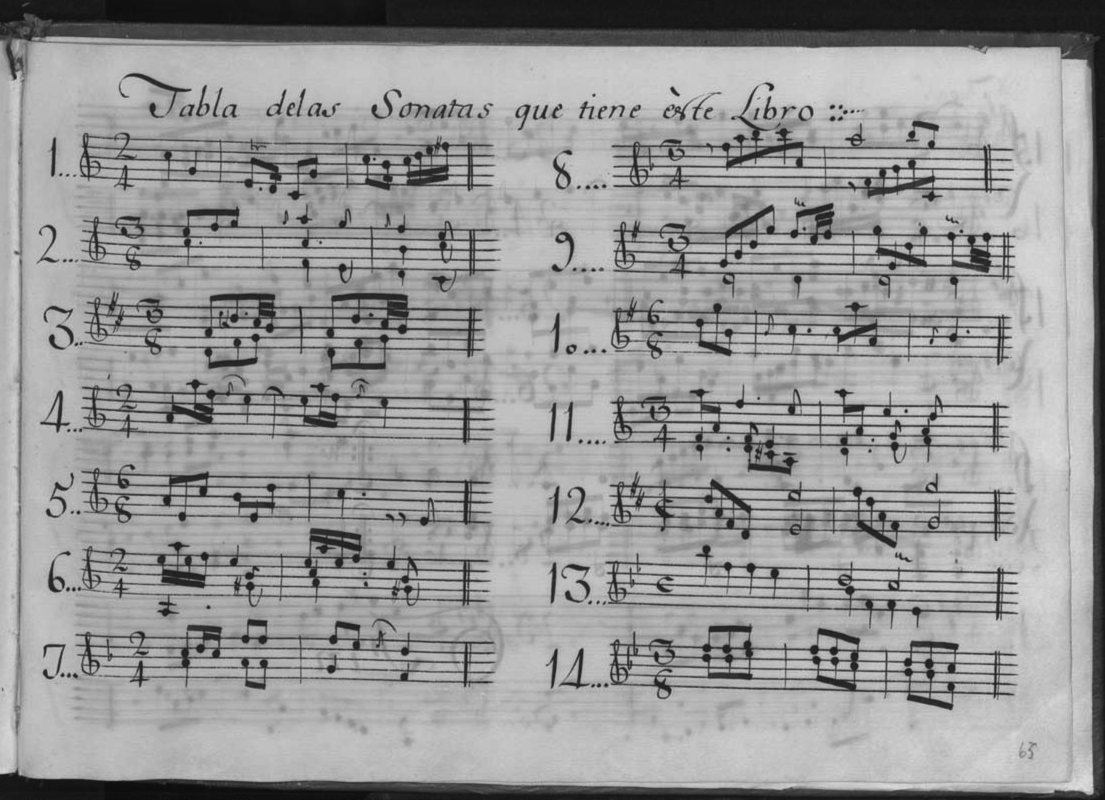 Tabla delas Sonatas que tiene èste Libro ::....
1...
2 4
2...
3 8
3..
3 8
4...
2 4
5..
6 8
6...
2 4
7...
2 4
8....
3 4
9....
3 4
1o...
6 8
11....
3 4
12....
13...
14...
3 8
65